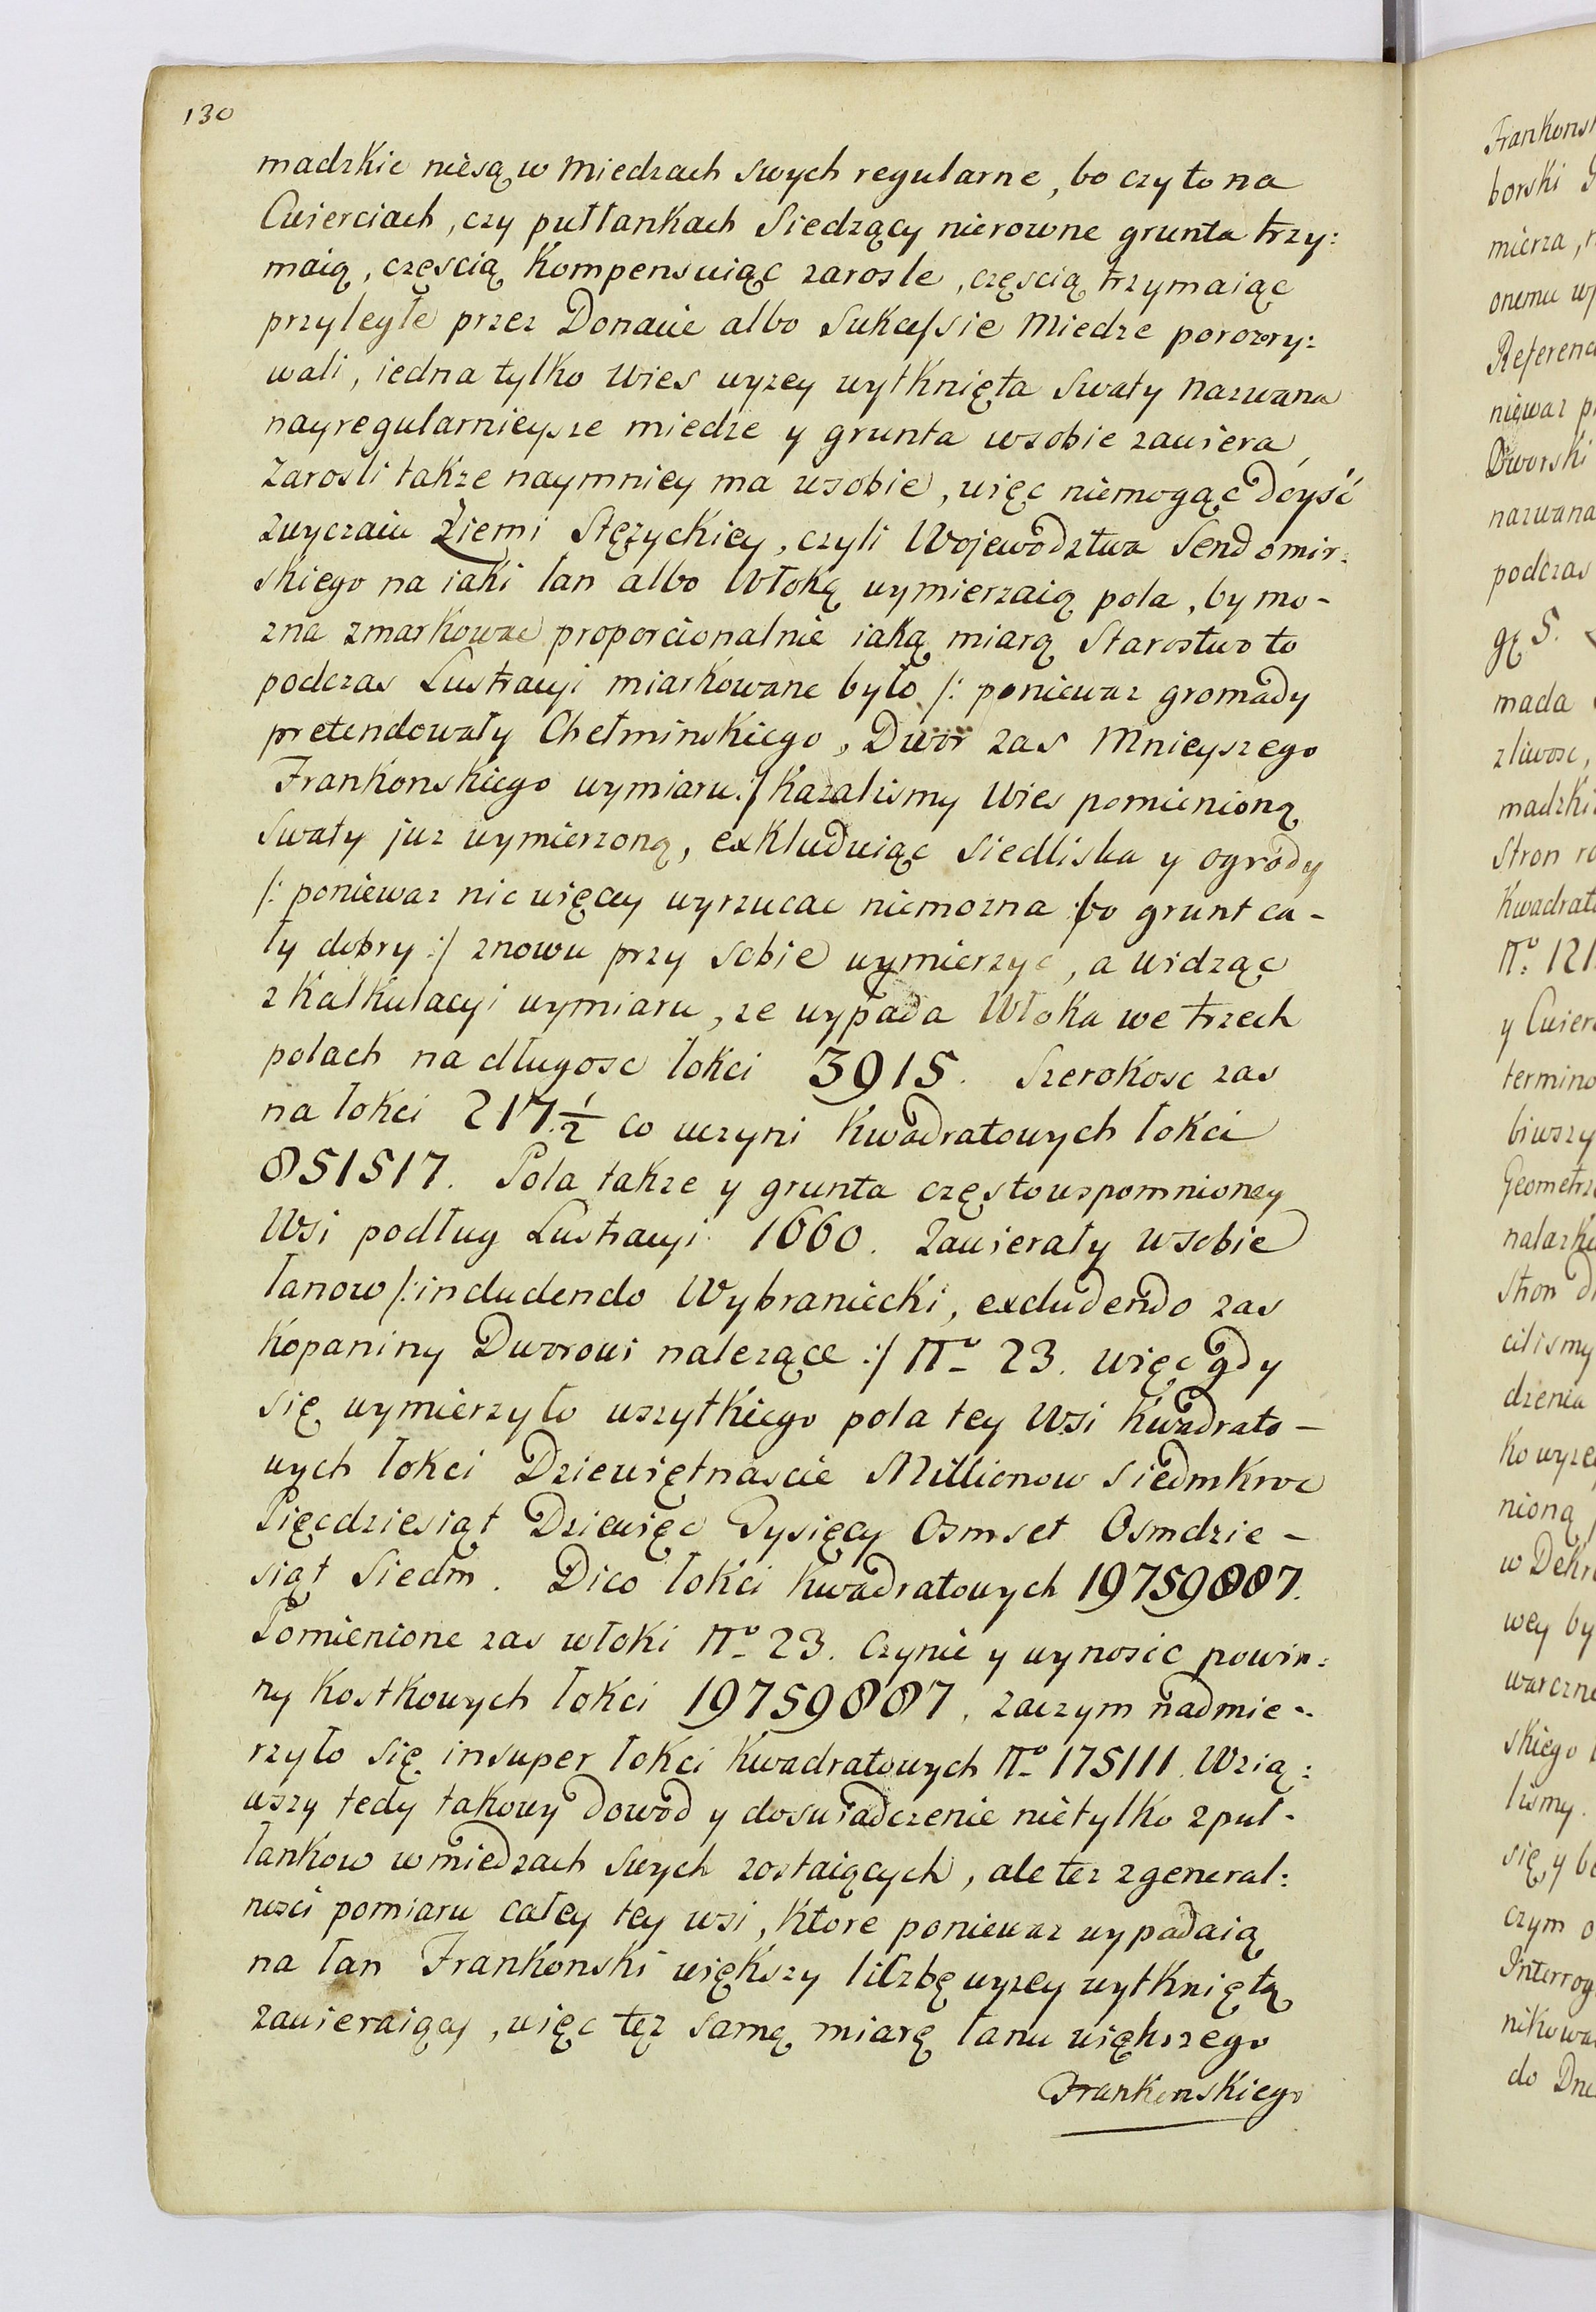 130
madzkie niesą w Miedzach swych regularne, bo czy to na
Cwierciach, czy pułłankach Siedzący nierowne grunta trzy:
maią, częscią Kompensuiąc zarosle, częscią trzymaiąc
przyległe przez Donacie albo Sukcessie Miedze porozry:
wali, iedna tylko Wies wyzey wytknięta Swaty nazwana
nayregularnieysze miedze y grunta wsobie zawiera,
Zarosli takze naymniey ma wsobie, więc niemogąc doyść
zwyczaiu Ziemi Stężyckiey, czyli Wojewodztwa Sendomir:
skiego na iaki łan albo Włokę wymierzaią pola, by mo-
zna zmarkowac proporcionalnie iaką miarą Starostwo to
podczas Lustracyi miarkowane było /: poniewaz gromady
pretendowały Chełminskiego, Dwor zas Mnieyszego
Frankonskiego wymiaru :/ Kazalismy Wies pomienioną
Swaty juz wymierzoną, exkluduiąc Siedliska y ogrody
/: poniewaz nic więcey wyrzucac niemozna bo grunt ca-
ły dobry :/ znowu przy sobie wymierzyc, a widząc
z Kalkulacyi wymiaru, ze wypada Włoka we trzech
polach na długosc łokci 3915. Szerokosc zas
na łokci 217 1/2 co uczyni Kwadratowych łokci
851517. Pola takze y grunta częstouspomnioney
Wsi podług Lustracyi 1660. Zawierały wsobie
łanow /: includendo Wybraniecki, excludendo zas
Kopaniny Dworowi nalezące :/ No 23. więc gdy
się wymierzyło wszytkiego pola tey Wsi Kwadrato-
wych łokci Dziewiętnascie Millionow Siedmkroc
Pięcdziesiąt Dziewięc Tysięcy Osmset Osmdzie-
siąt Siedm. Dico łokci Kwadratowych 19759887.
Pomienione zas włoki No 23. Czynic y wynosic powin:
ny Kostkowych łokci 19759887, zaczym nadmie-
rzyło się insuper łokci Kwadratowych No 175111. Wzią:
wszy tedy takowy dowod y doswiadczenie nietylko z puł-
łankow w miedzach swych zostaiących, ale tez z general:
nosci pomiaru całey tey wsi, Ktore poniewaz wypadaią
na łan Frankonski większy liczbę wyzey wytkniętą
zawieraiący, więc tęz samę miarę łanu większego
Frankonskiego
Frankons
borski
mierza,
onemu
Referenc
niewaz
Dworski
nazwana
podczas
gę 5.
mada
zliwosc,
madzki
Stron
Kwadrat
No: 121
y Cwier
termino
biwszy
Geometr
nalazk
Stron
cilismy
dzenia
Ko wyze
nioną
w Dekr
wey by
warczne
skiego
lismy.
się y
czym
Interrog
nikowa
do